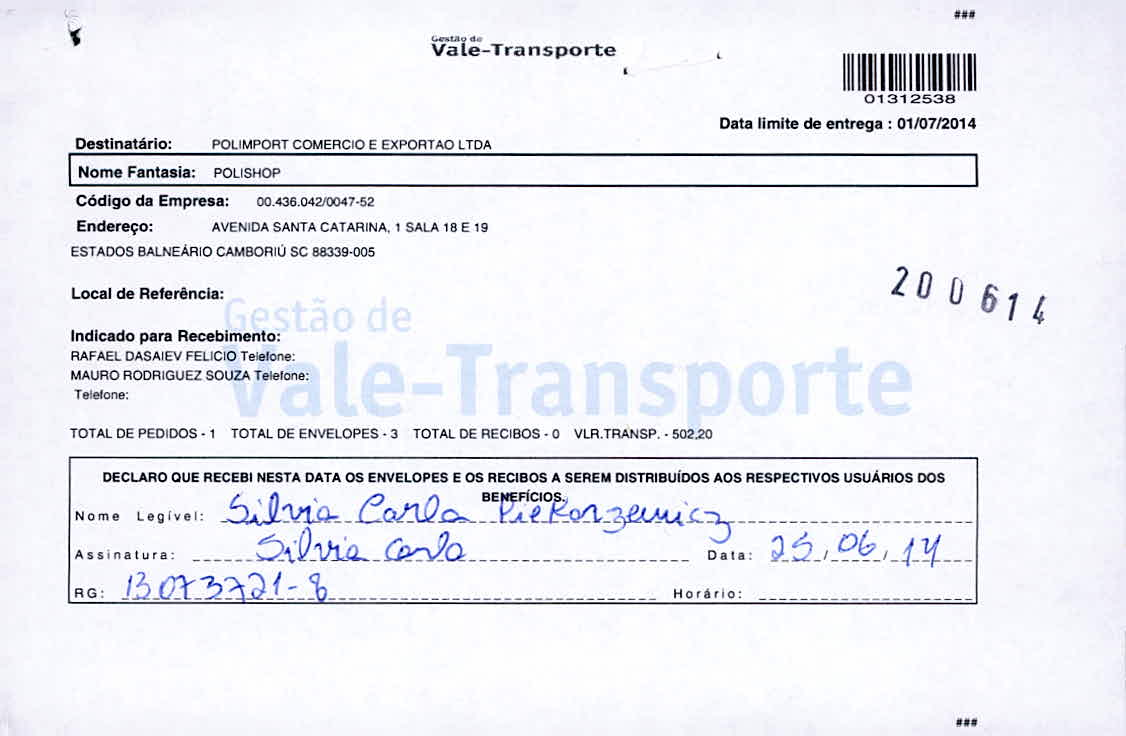 ###
Gestão de
Vale-Transporte
01312538
Data limite de entrega : 01/07/2014
Destinatário: POLIMPORT COMERCIO E EXPORTAO LTDA
Nome Fantasia: POLISHOP
Código da Empresa: 00.436.042/0047-52
Endereço: AVENIDA SANTA CATARINA, 1 SALA 18 E 19
ESTADOS BALNEÁRIO CAMBORIÚ SC 88339-005
200614
Local de Referência:
Gestão de
Vale-Transporte
Indicado para Recebimento:
RAFAEL DASAIEV FELICIO Telefone:
MAURO RODRIGUEZ SOUZA Telefone:
Telefone:
TOTAL DE PEDIDOS - 1 TOTAL DE ENVELOPES - 3 TOTAL DE RECIBOS - 0 VLR.TRANSP. - 502,20
DECLARO QUE RECEBI NESTA DATA OS ENVELOPES E OS RECIBOS A SEREM DISTRIBUÍDOS AOS RESPECTIVOS USUÁRIOS DOS
BENEFÍCIOS.
Nome Legível: Silvia Carla Piekarzewicz
Assinatura: Silvia Carla Data: 25/06/14
RG: 13073721-8 Horário:
###